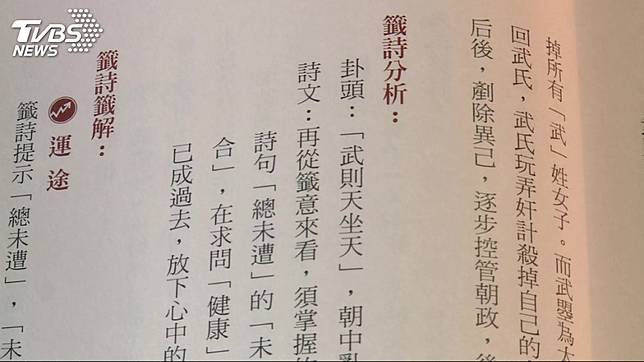 TVBS
NEWS
掉所有「武」姓女子。而武曌為
回武氏，武氏玩弄奸計殺掉自己的
后後，剷除異己，逐步控管朝政，
籤詩分析：
卦頭：「武則天坐天」，朝中亂
詩文：再從籤意來看，須掌握
詩句「總未遭」的「未
合」，在求問「健康」
已成過去，放下心中的
籤詩籤解：
運途
籤詩提示「總未遭」，「未